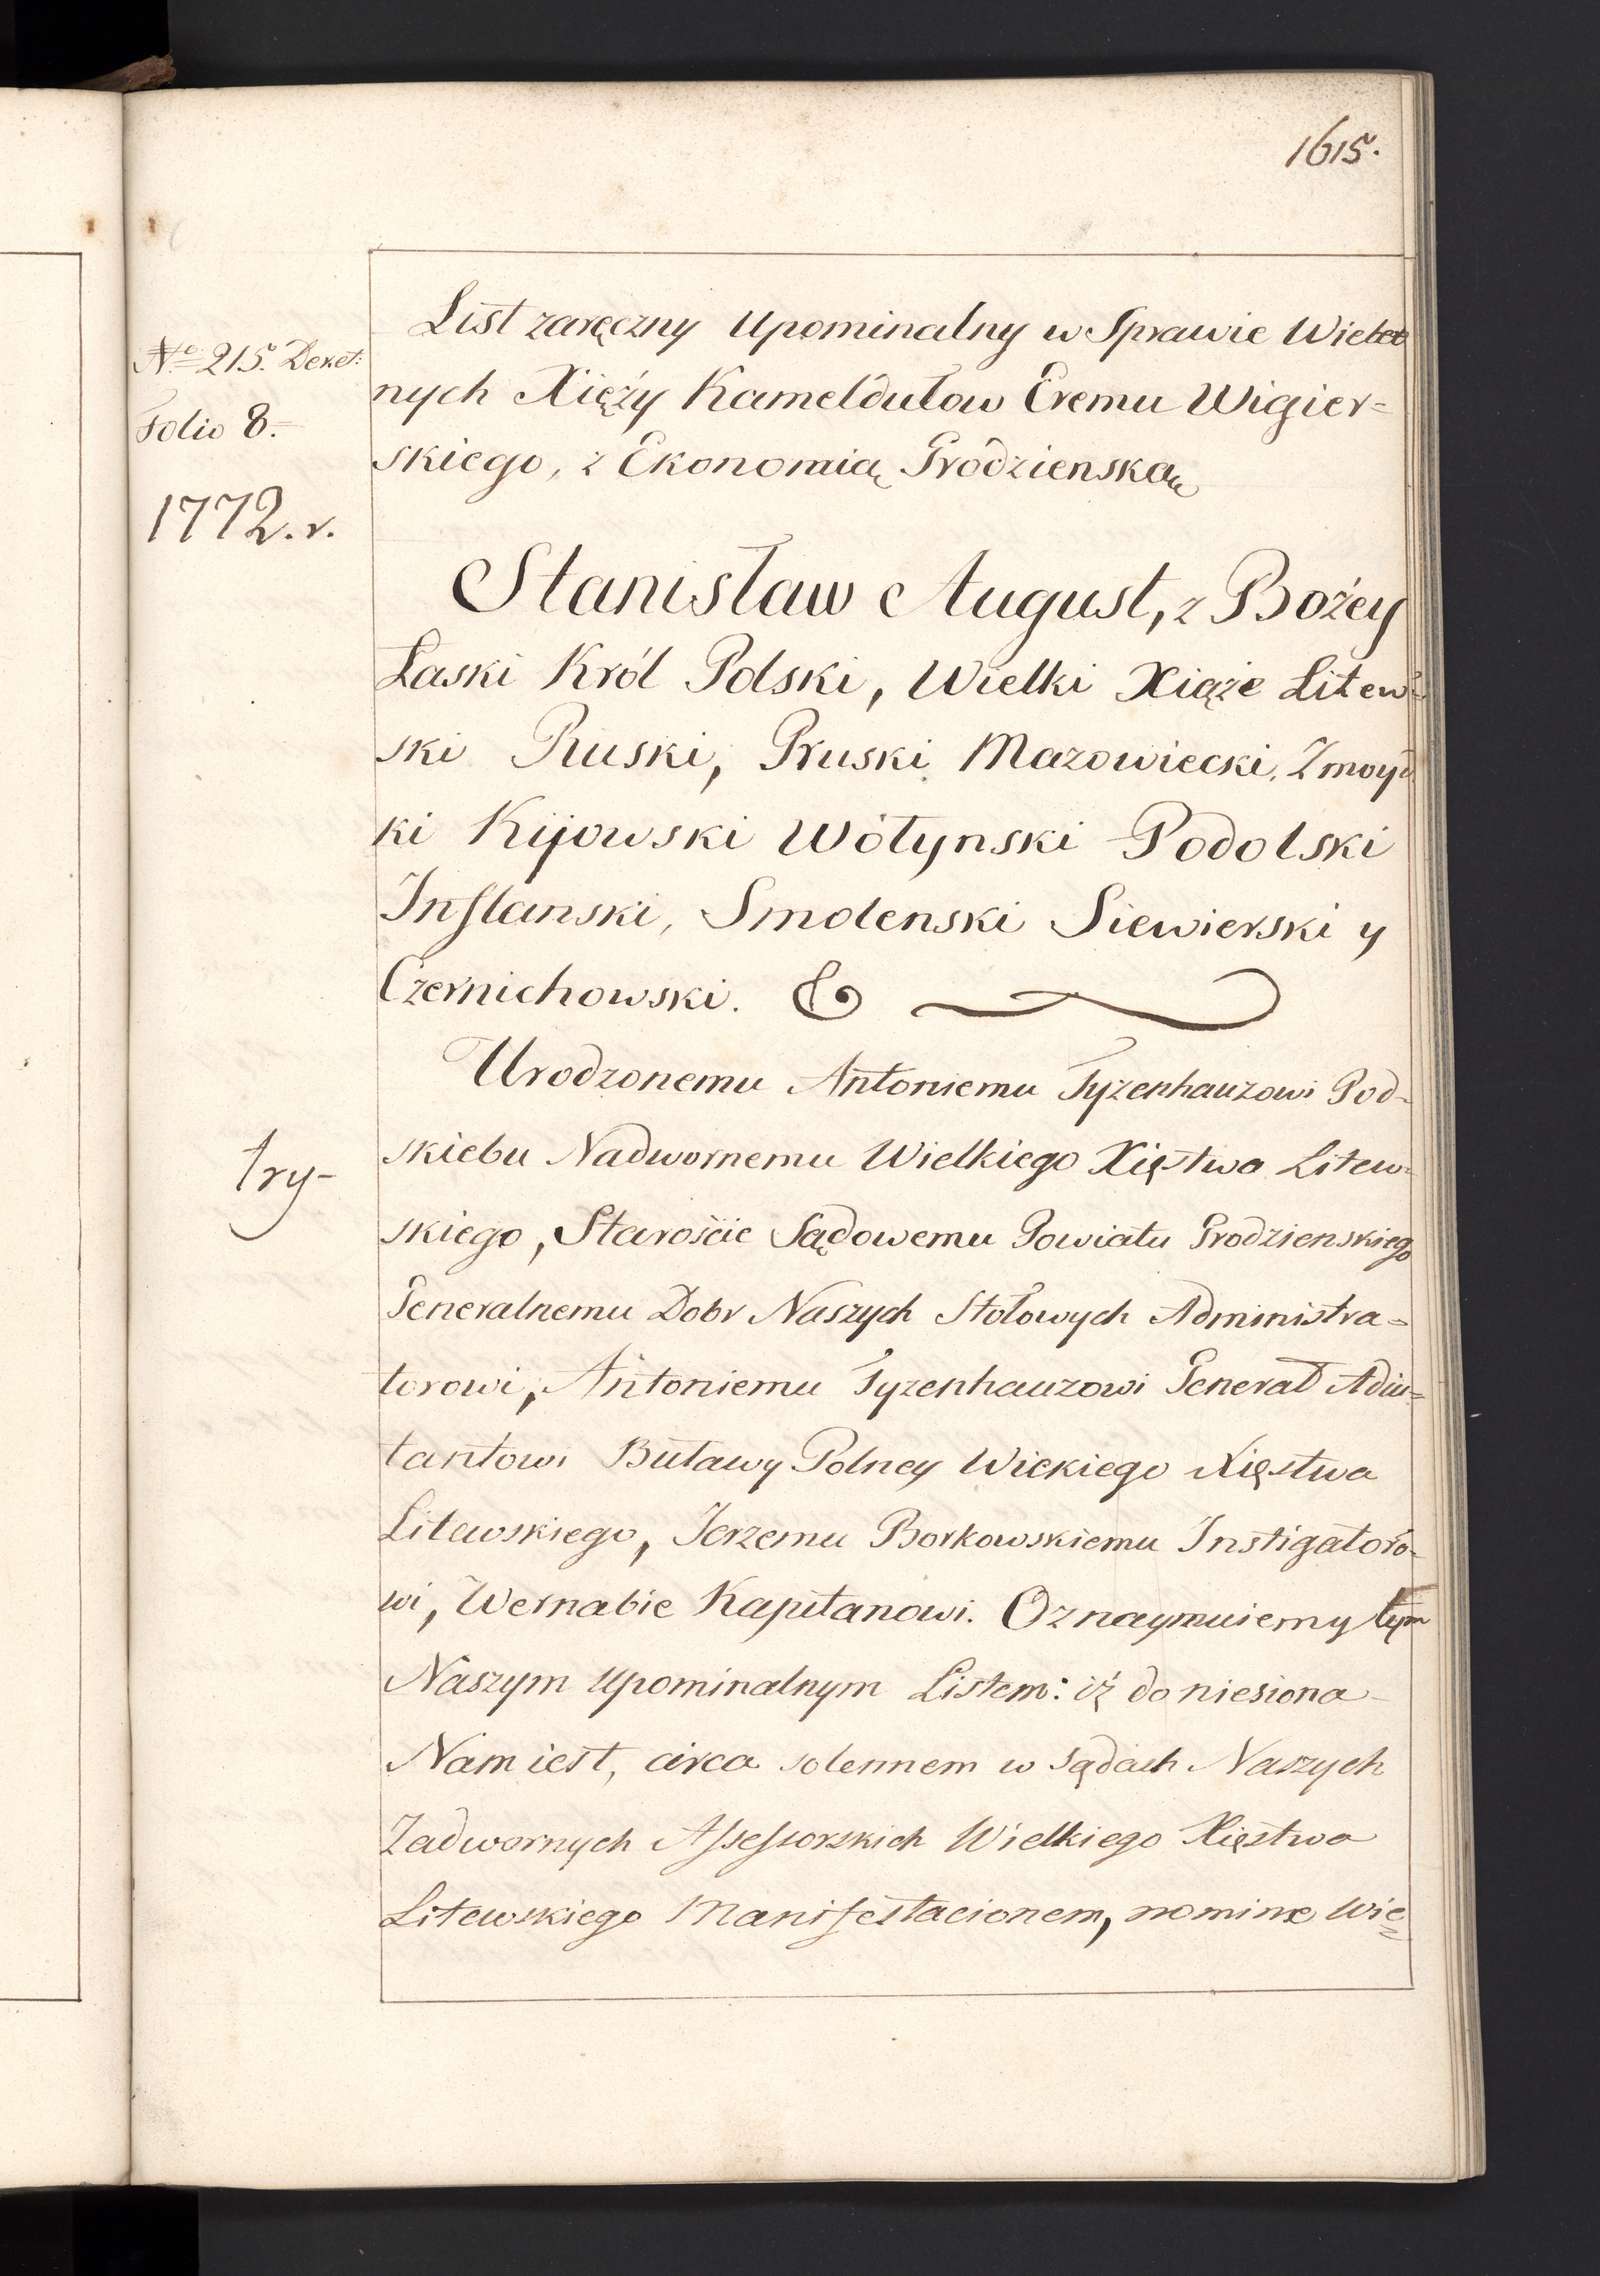 1615.
List zaręczny Upominalny w Sprawie Wieleb
No 215. Dekret:
nych Xięży Kameldułow Eremu Wigier=
Folio 8.
skiego, z Ekonomią Grodzienską
1772. r.
Stanisław August, z Bożey
Łaski Król Polski, Wielki Xiąże Litew=
ski Ruski, Pruski Mazowiecki, Zmoyd
ki Kijowski Wołynski Podolski
Inflanski, Smolenski Siewierski y
Czernichowski. &
Urodzonemu Antoniemu Tyzenhauzowi Pod-
skiebu Nadwornemu Wielkiego Xięstwa Litew-
try-
skiego, Staroście Sądowemu Powiatu Grodzienskiego
Generalnemu Dobr Naszych Stołowych Administra=
torowi, Antoniemu Tyzenhauzowi Generał Adiu=
tantowi Buławy Polney Wiekiego Xięstwa
Litewskiego, Jerzemu Borkowskiemu Instigatoro-
wi, Wernabie Kapitanowi. Oznaymuiemy tym
Naszym Upominalnym Listem: iż doniesiona
Nam iest, circa solennem w Sądach Naszych
Zadwornych Assessorskich Wielkiego Xięstwa
Litewskiego Manifestacionem, nomine Wie=